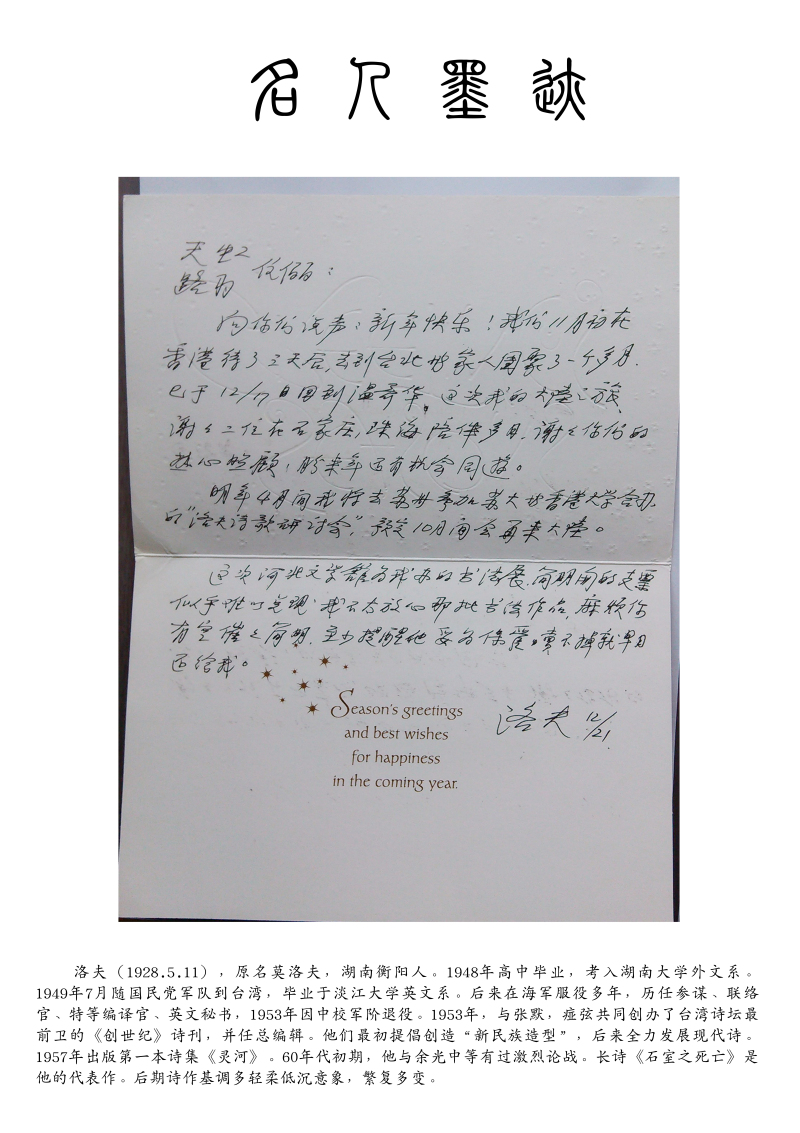 名人墨迹
天
路羽 伉俪：
向你们说声：新年快乐！我们11月初在
香港待了三天后，去到台北与家人团聚了一个多月，
已于12/17日回到温哥华。这次我的大陆之旅
谢谢二位在石家庄，珠海陪伴多日，谢谢你们的
热心照顾，盼来年还有机会同游。
明年4月间我将去苏州参加苏大与香港大学合办
的“洛夫诗歌研讨会”，预定10月间会再来大陆。
这次河北文学馆为我办的书法展，简明开的支票
似乎难以兑现，我不太放心那批书法作品，麻烦你
有空催催简明，至少提醒他妥为保管，卖不掉就早日
还给我。
Season's greetings
and best wishes
for happiness
in the coming year.
洛夫 12/21
洛夫（1928.5.11），原名莫洛夫，湖南衡阳人。1948年高中毕业，考入湖南大学外文系。
1949年7月随国民党军队到台湾，毕业于淡江大学英文系。后来在海军服役多年，历任参谋、联络
官、特等编译官、英文秘书，1953年因中校军阶退役。1953年，与张默，痖弦共同创办了台湾诗坛最
前卫的《创世纪》诗刊，并任总编辑。他们最初提倡创造“新民族造型”，后来全力发展现代诗。
1957年出版第一本诗集《灵河》。60年代初期，他与余光中等有过激烈论战。长诗《石室之死亡》是
他的代表作。后期诗作基调多轻柔低沉意象，繁复多变。